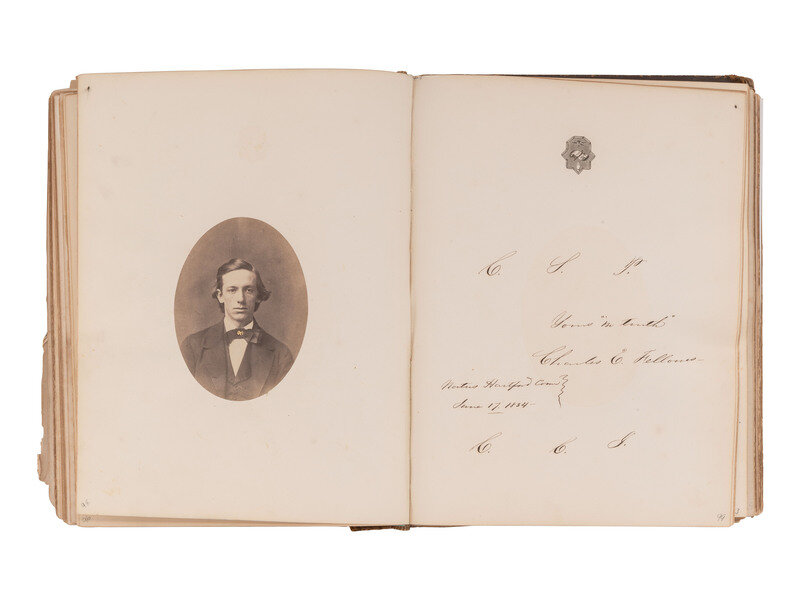 C. S. P.
Yours "in truth"
Charles "C." Fellowes
Hartford Conn
June 17 1834
C. C. J.
99